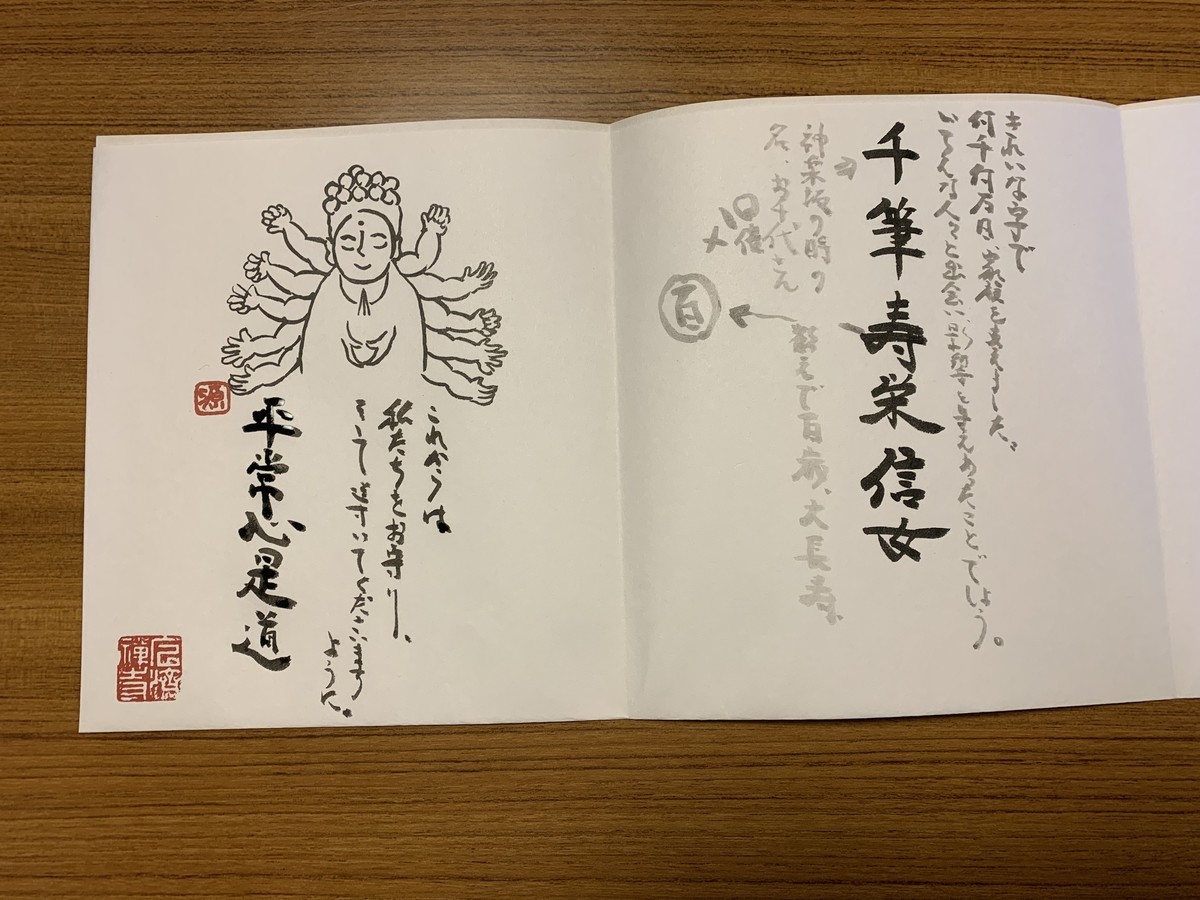 きれいな字で
何千何万日、家族を支えました。
いろんな人々と出会い、影響を与えあったことでしょう。
千筆寿栄信女
神楽坂の時の
名、お千代さん
数えで百歳、大長寿。
百
これからは
私たちをお守り、
そして導いてくださいます
ように。
平常心是道
源
禅寺